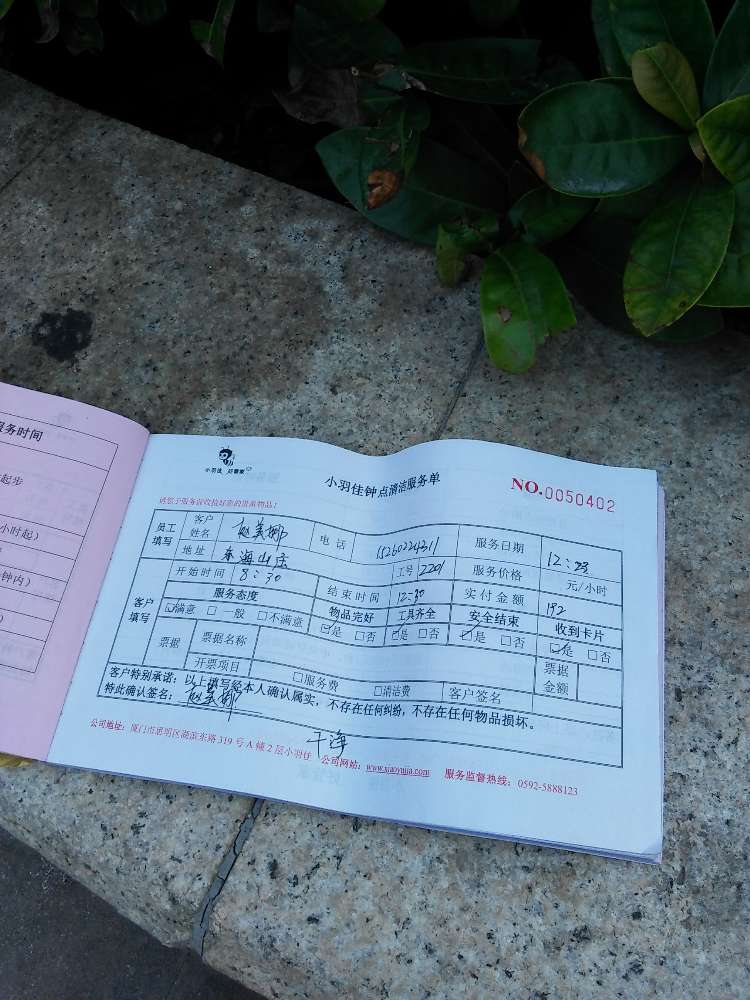 服务时间
起步
小时起）
钟内）
小羽佳 好管家
小羽佳钟点清洁服务单
NO.0050402
请您于服务前收拾好您的贵重物品！
员工填写 客户姓名 赵美娜 电话 15260224311 服务日期 12:23
地址 东海山庄 工号 2201 服务价格 元/小时
客户填写 开始时间 8:30 结束时间 12:30 实付金额 192
服务态度 物品完好 工具齐全 安全结束 收到卡片
☑满意 □一般 □不满意 ☑是 □否 ☑是 □否 ☑是 □否 ☑是 □否
票据 票据名称 票据金额
开票项目 □服务费 □清洁费 客户签名
客户特别承诺：以上填写经本人确认属实，不存在任何纠纷，不存在任何物品损坏。
特此确认签名： 赵美娜
公司地址：厦门市思明区湖滨东路 319 号 A 幢 2 层小羽佳 公司网站：www.xiaoyujia.com 服务监督热线：0592-5888123